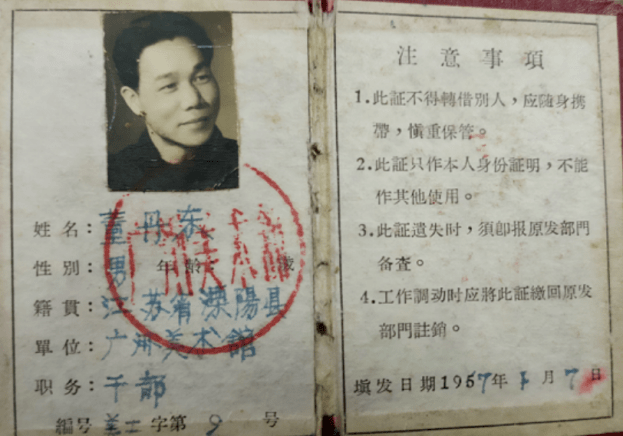 姓名：董丹东
性別：男 年齡 歲
籍貫：江苏省溧陽县
單位：广州美术館
职务：干部
編号 美二字第 9 号
注意事項
1.此証不得轉借別人，应随身携
帶，慎重保管。
2.此証只作本人身份証明，不能
作其他使用。
3.此証遺失时，須卽报原发部門
备查。
4.工作調动时应將此証繳回原发
部門註銷。
填发日期1957年 月 7日